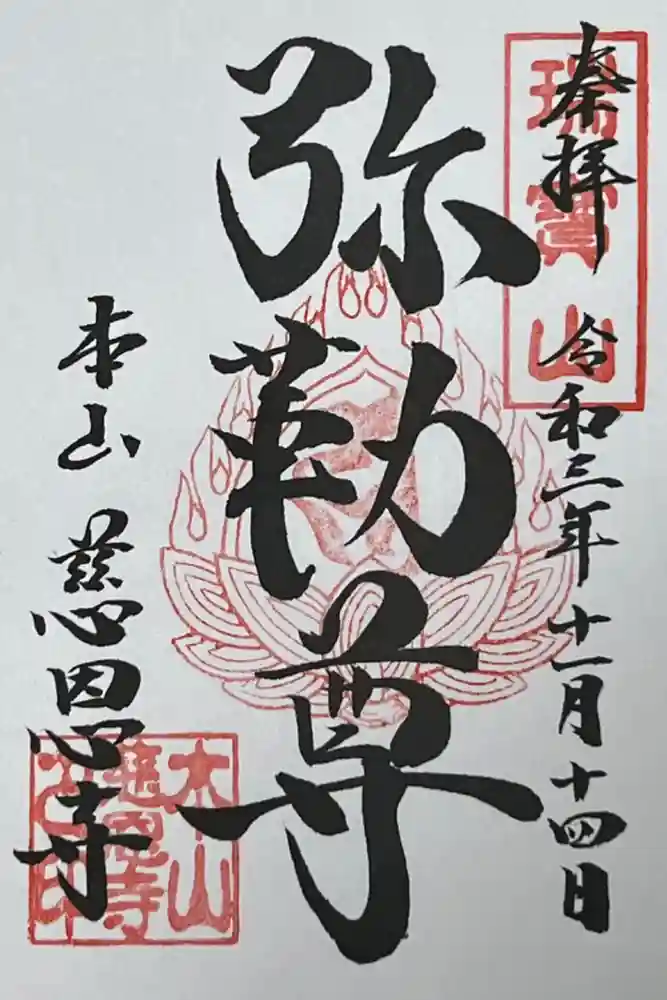 奉拝
令和三年十一月十四日
瑞寳山
弥勒尊
本山
慈恩寺
本山慈恩寺之印